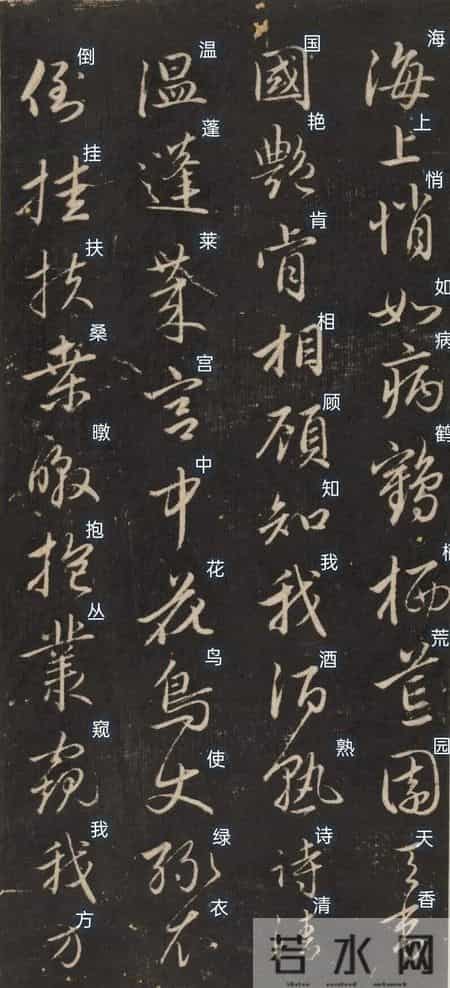 海上悄如病鶴栖荒園天香
海上悄如病鹤栖荒园天香
國艷肯相顧知我酒熟詩清
国艳肯相顾知我酒熟诗清
溫蓬萊宮中花鳥使綠衣
温蓬莱宫中花鸟使绿衣
倒挂扶桑暾抱叢窺我方
倒挂扶桑暾抱丛窥我方
若水网